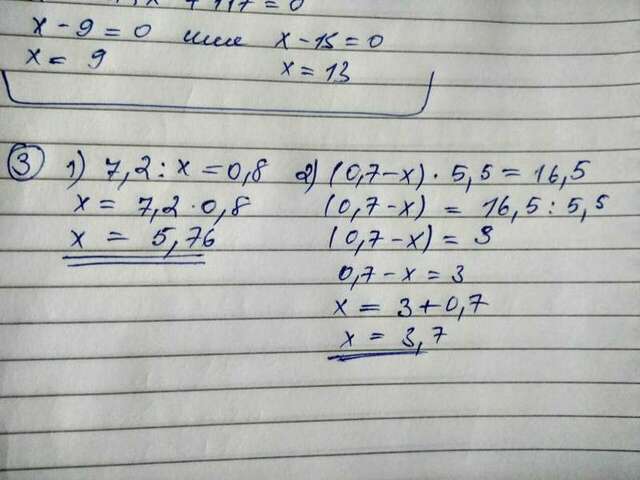 + 117 = 0
x - 9 = 0 или x - 15 = 0
x = 9 x = 13
3 1) 7,2 : x = 0,8 2) (0,7 - x) · 5,5 = 16,5
x = 7,2 · 0,8 (0,7 - x) = 16,5 : 5,5
x = 5,76 (0,7 - x) = 3
0,7 - x = 3
x = 3 + 0,7
x = 3,7